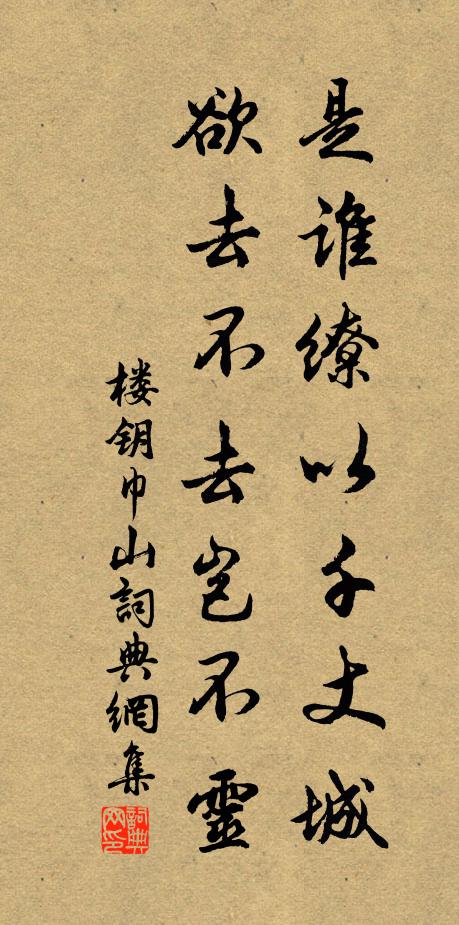 是誰繚以千丈城
欲去不去豈不靈
楼钥巾山詞典網集
詞典网印